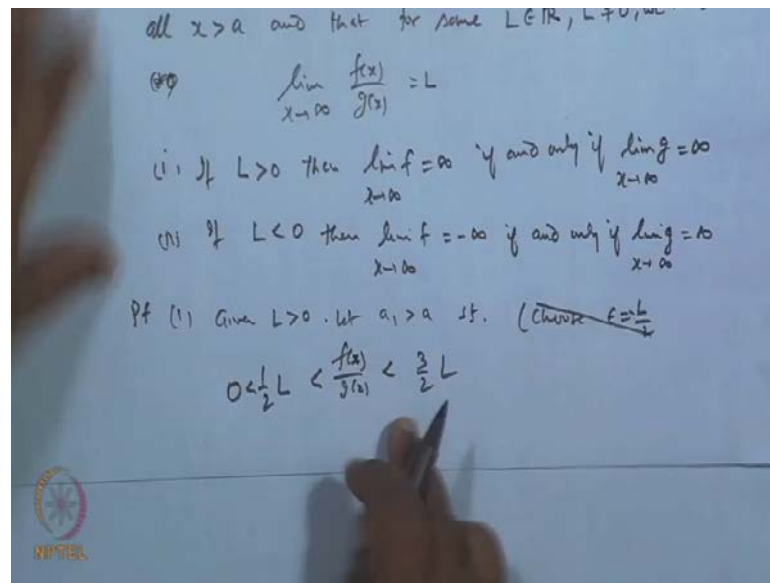 all x > a and that for some L ∈ ℝ, L ≠ 0,
lim x→∞ f(x)/g(x) = L
(i) If L > 0 then lim x→∞ f = ∞ if and only if lim x→∞ g = ∞
(ii) If L < 0 then lim x→∞ f = -∞ if and only if lim x→∞ g = ∞
Pf (i) Given L > 0. Let a₁ > a st. (Choose ε = L/2
0 < 1/2 L < f(x)/g(x) < 3/2 L
NPTEL